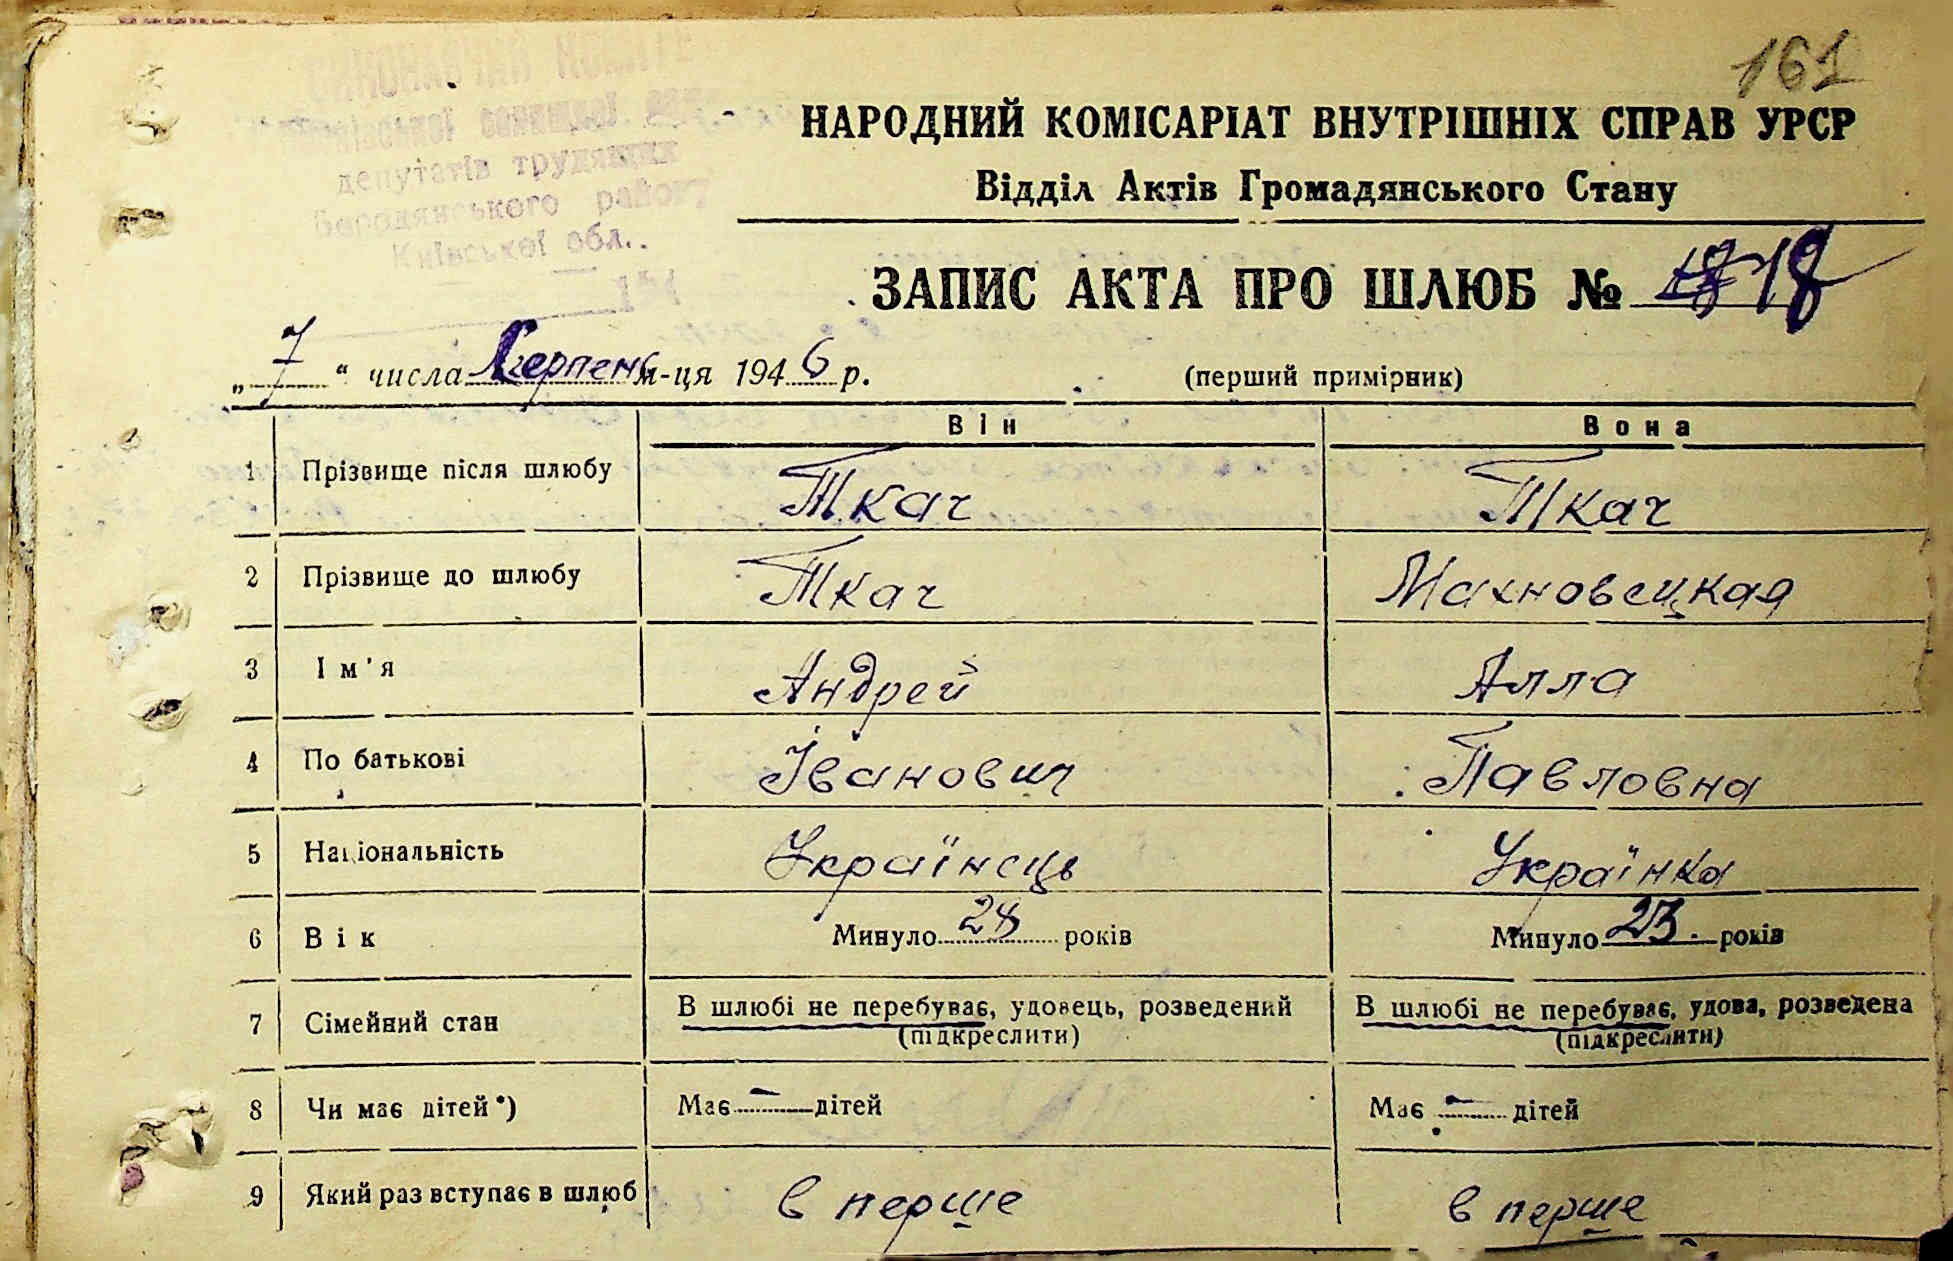 161
депутатів трудящих
Бородянського району
Київської обл.
НАРОДНИЙ КОМІСАРІАТ ВНУТРІШНІХ СПРАВ УРСР
Відділ Актів Громадянського Стану
ЗАПИС АКТА ПРО ШЛЮБ № 18 18
„7“ числа Серпень м-ця 1946 р. (перший примірник)
Він Вона
1 Прізвище після шлюбу Ткач Ткач
2 Прізвище до шлюбу Ткач Махновецкая
3 Ім'я Андрей Алла
4 По батькові Іванович Павловна
5 Національність Українець Українка
6 Вік Минуло 28 років Минуло 23 років
7 Сімейний стан В шлюбі не перебуває, удовець, розведений В шлюбі не перебуває, удова, розведена
(підкреслити) (підкреслити)
8 Чи має дітей*) Має — дітей Має — дітей
9 Який раз вступає в шлюб в перше в перше